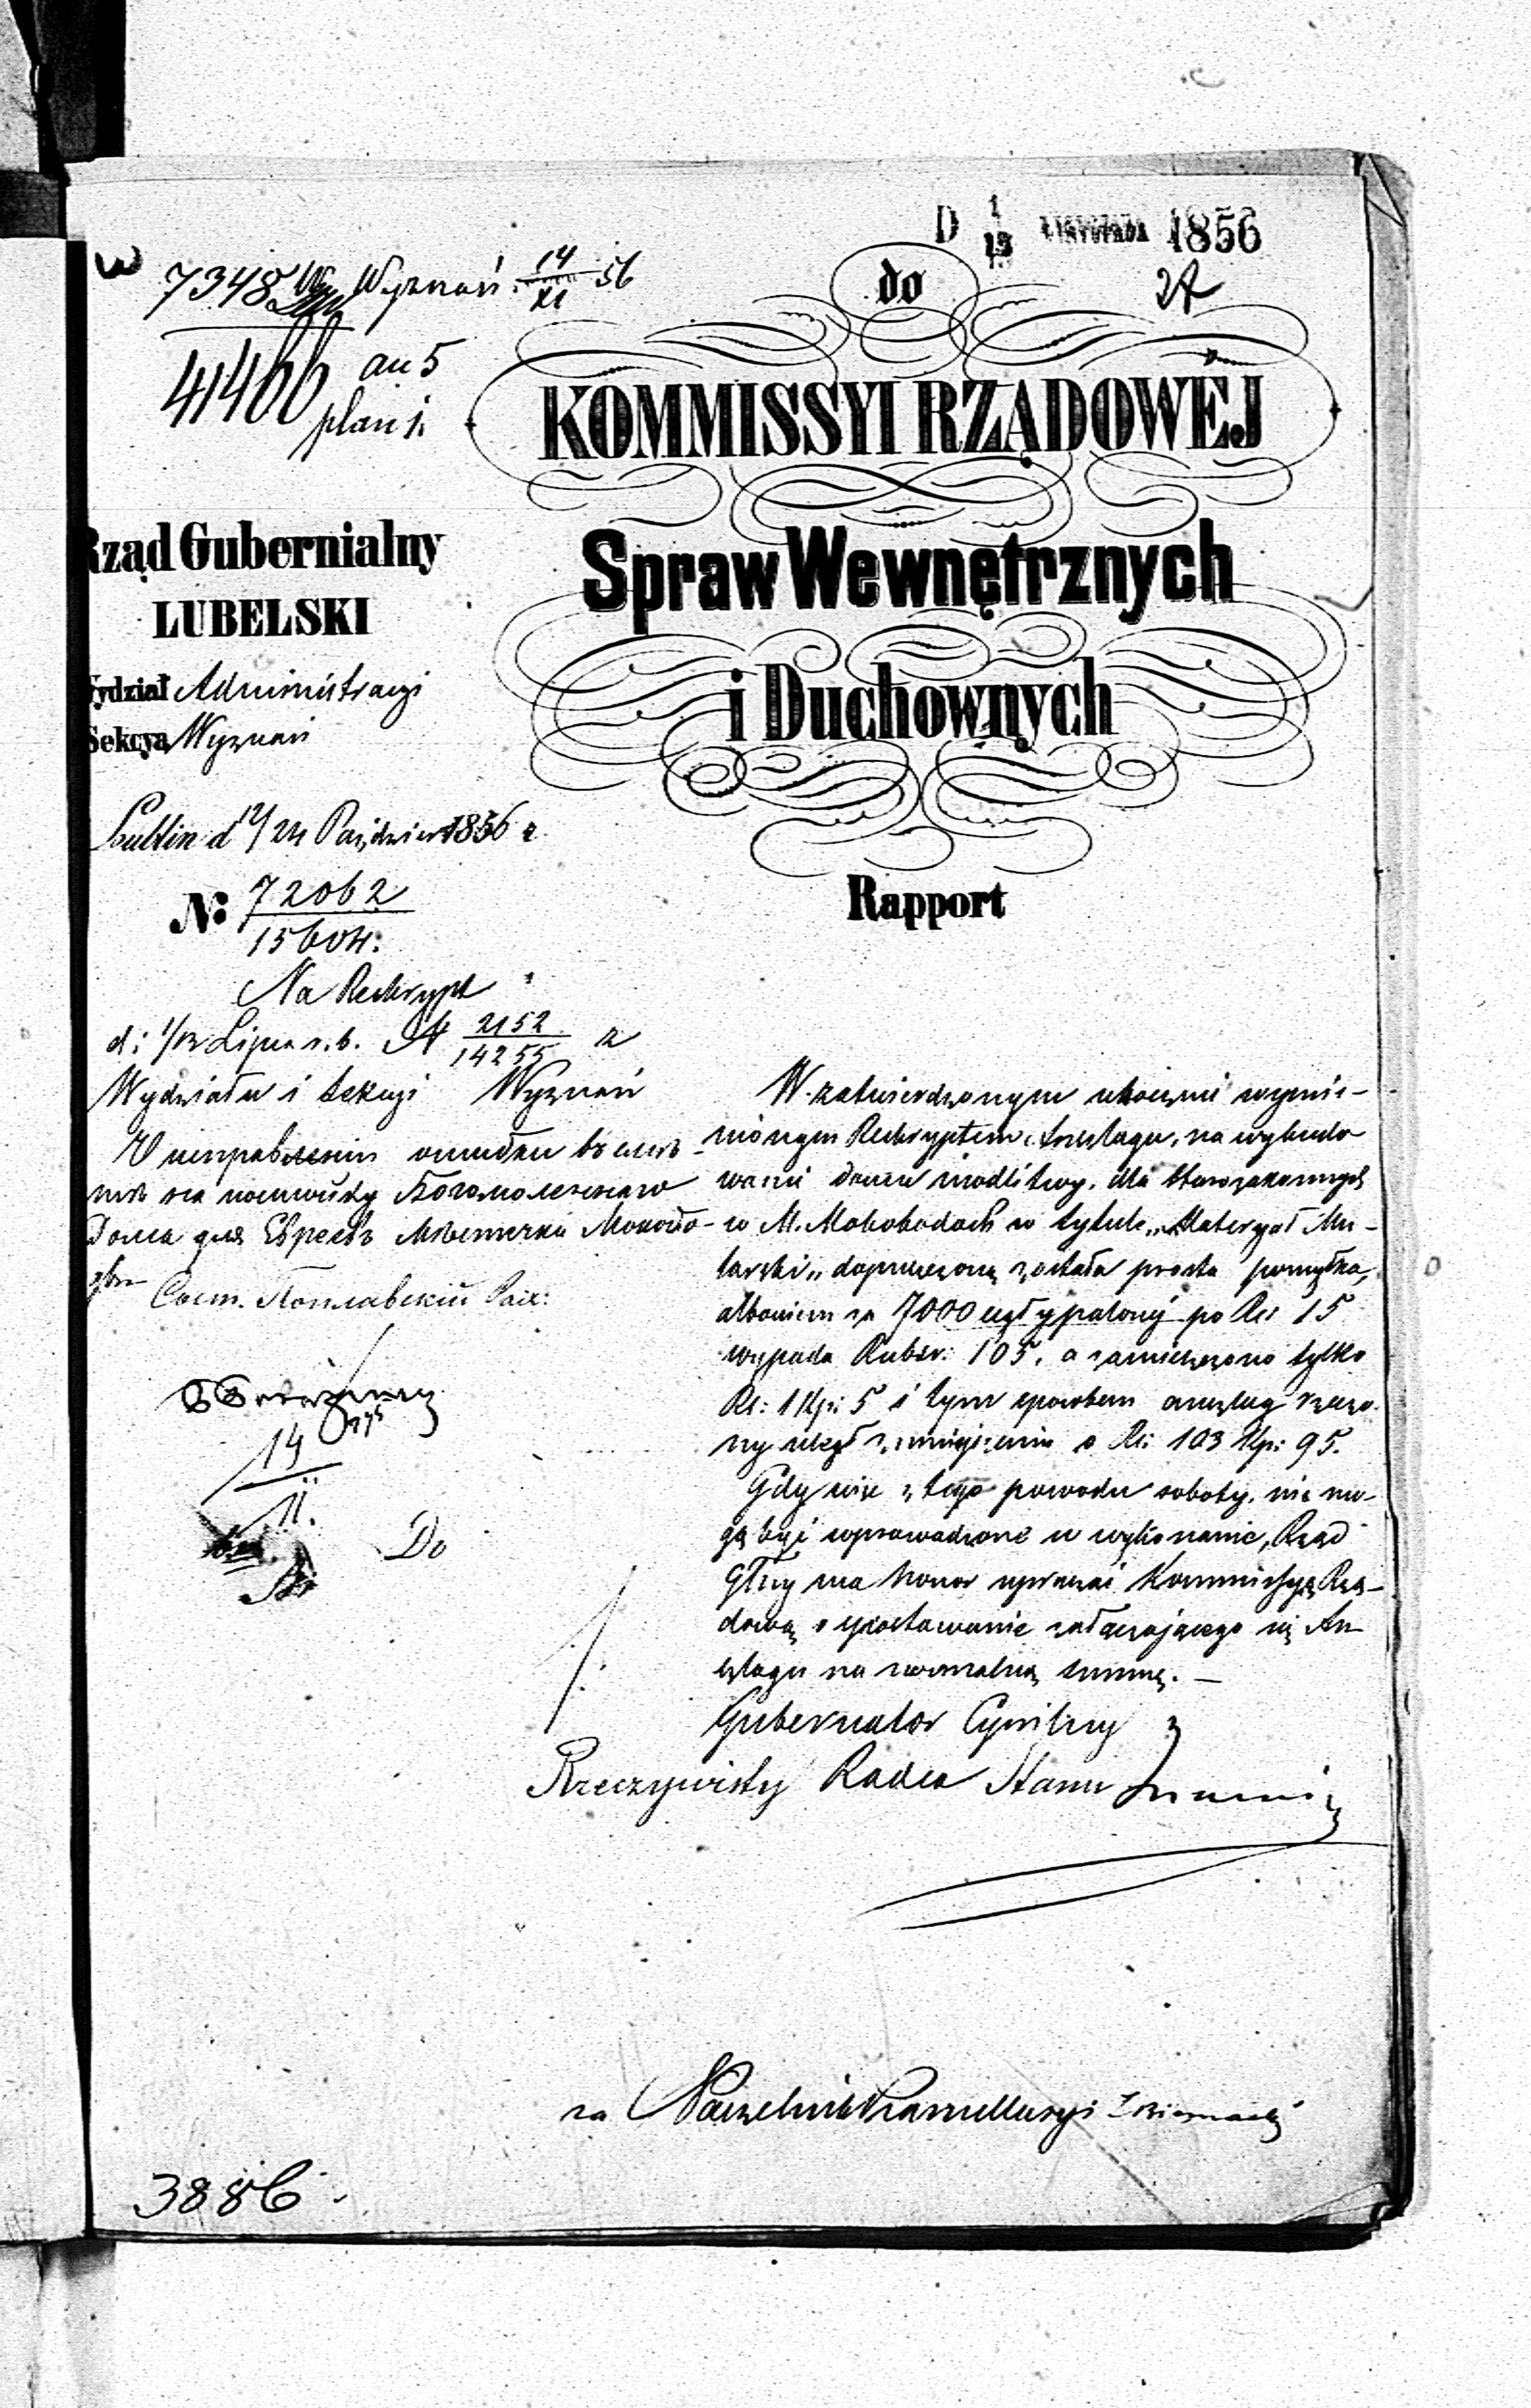 D 1/13 LISTOPADA 1856
7348 Wyznań 14/XI 56
do
41466 an 5
plan 1.
KOMMISSYI RZĄDOWÉJ
Rząd Gubernialny
Spraw Wewnętrznych
LUBELSKI
i Duchownych
Wydział Administracyi
Sekcya Wyznań
Lublin d 12/24 Paździer 1856 r
Rapport
№ 72062
15604.
Na Reskrypt
d: 1/13 Lipca r. b. N 2152/14255 z
Wydziału i Sekcyi Wyznań
Дома для Евреевъ Мѣстечка
W zatwierdzonym ubocznie wymie-
nionym Reskryptem Anszlagu, na wybudo
wanie domu modlitwy dla Starozakonnych
w M. Mokobodach w tytule „Materyał Mu-
larski„ dopuszczoną została prosta pomyłka,
albowiem za 7000 cegły palonéj po Rs 15
wypada Rubsr: 105, a zamieszczono tylko
Rs: 1 Kp: 5 i tym sposobem anszlag rzeczo
ny uległ zmniejszeniu o Rs: 103 Kp: 95.
Gdy więc z tego powodu roboty, nie mo-
gą być wprowadzone w wykonanie, Rząd
Głny ma honor upraszać Kommissyą Rzą-
dową o sprostowanie załączającego się An
szlagu na normalną summę. —
Gubernator Cywilny
Rzeczywisty Radca Stanu
14
11.
Do
za Naczelnik Kancellaryi
3886